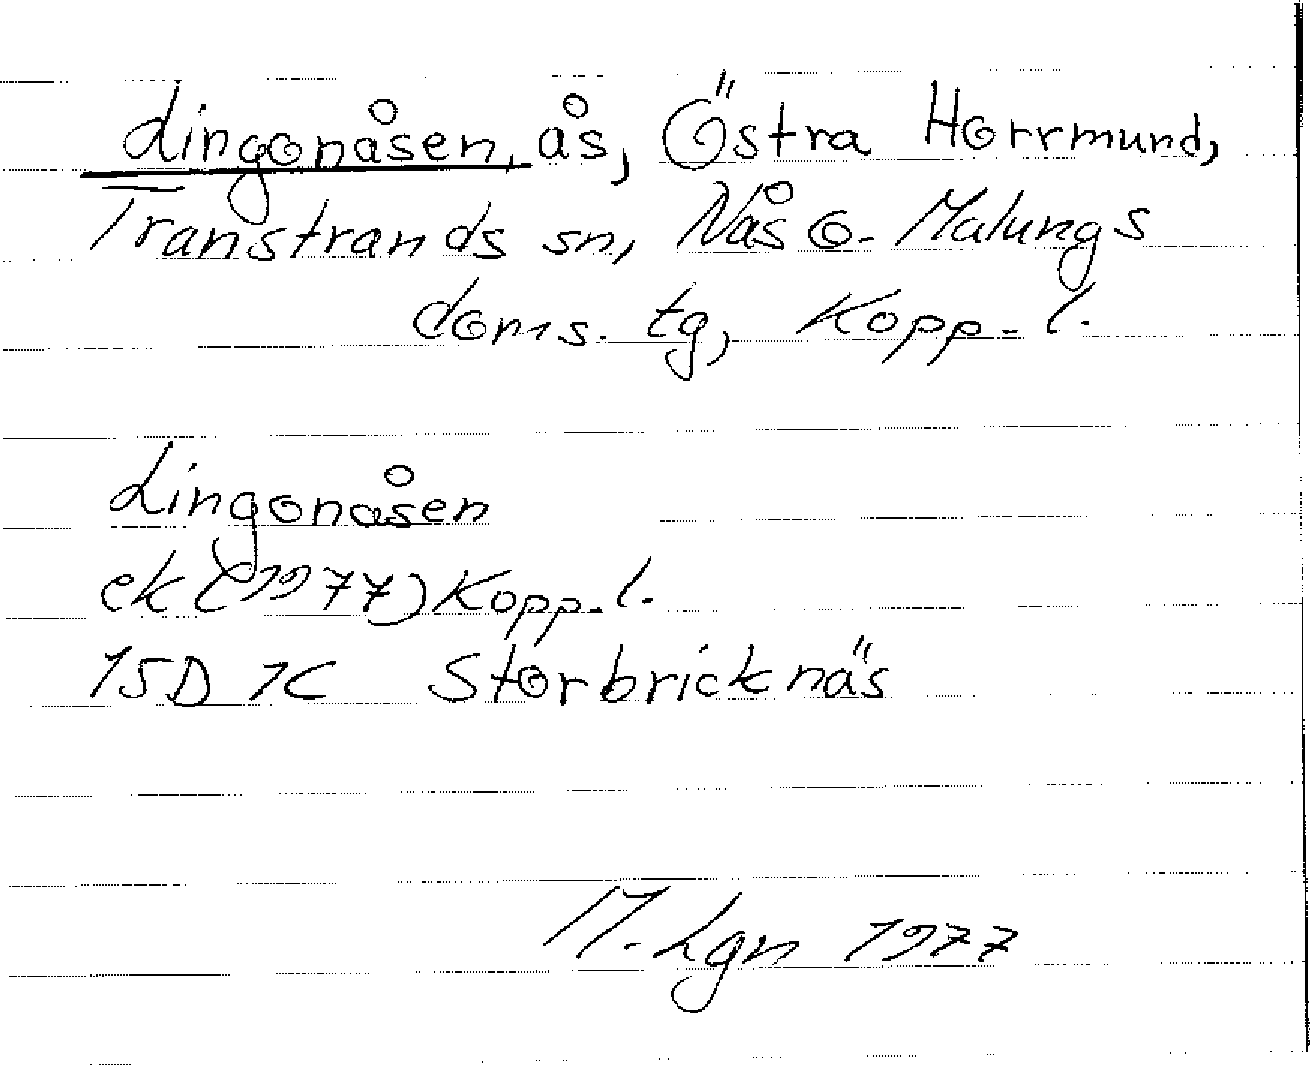 Lingonåsen, ås, Östra Horrmund,
Transtrands sn, Nås o. Malungs
doms. tg, Kopp. l.
Lingonåsen
ek (1977) Kopp. l.
15D 1c Storbricknäs
M. Lgn 1977